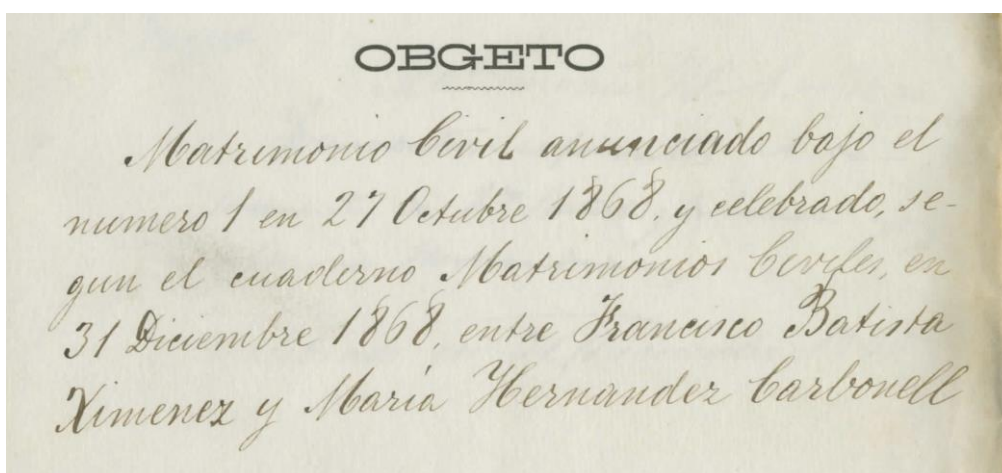 OBGETO
Matrimonio Civil anunciado bajo el
numero 1 en 27 Octubre 1868. y celebrado, se-
gun el cuaderno Matrimonios Civiles, en
31 Diciembre 1868, entre Francisco Batista
Ximenez y María Hernandez Carbonell